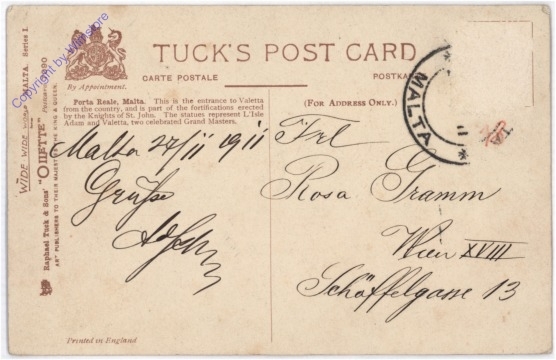 TUCK'S POST CARD
CARTE POSTALE
POSTKA
By Appointment.
(FOR ADDRESS ONLY.)
Porta Reale, Malta. This is the entrance to Valetta
from the country, and is part of the fortifications erected
by the Knights of St. John. The statues represent L'Isle
Adam and Valetta, two celebrated Grand Masters.
Malta 27/ii 1911
Grüße
Frl
Rosa Gramm
Wien XVIII
Schöffelgasse 13
MALTA
WIDE WIDE MALTA. Series I.
Raphael Tuck & Sons' "OILETTE"
ART PUBLISHERS TO THEIR MAJESTIES THE KING & QUEEN.
Printed in England
Copyright by